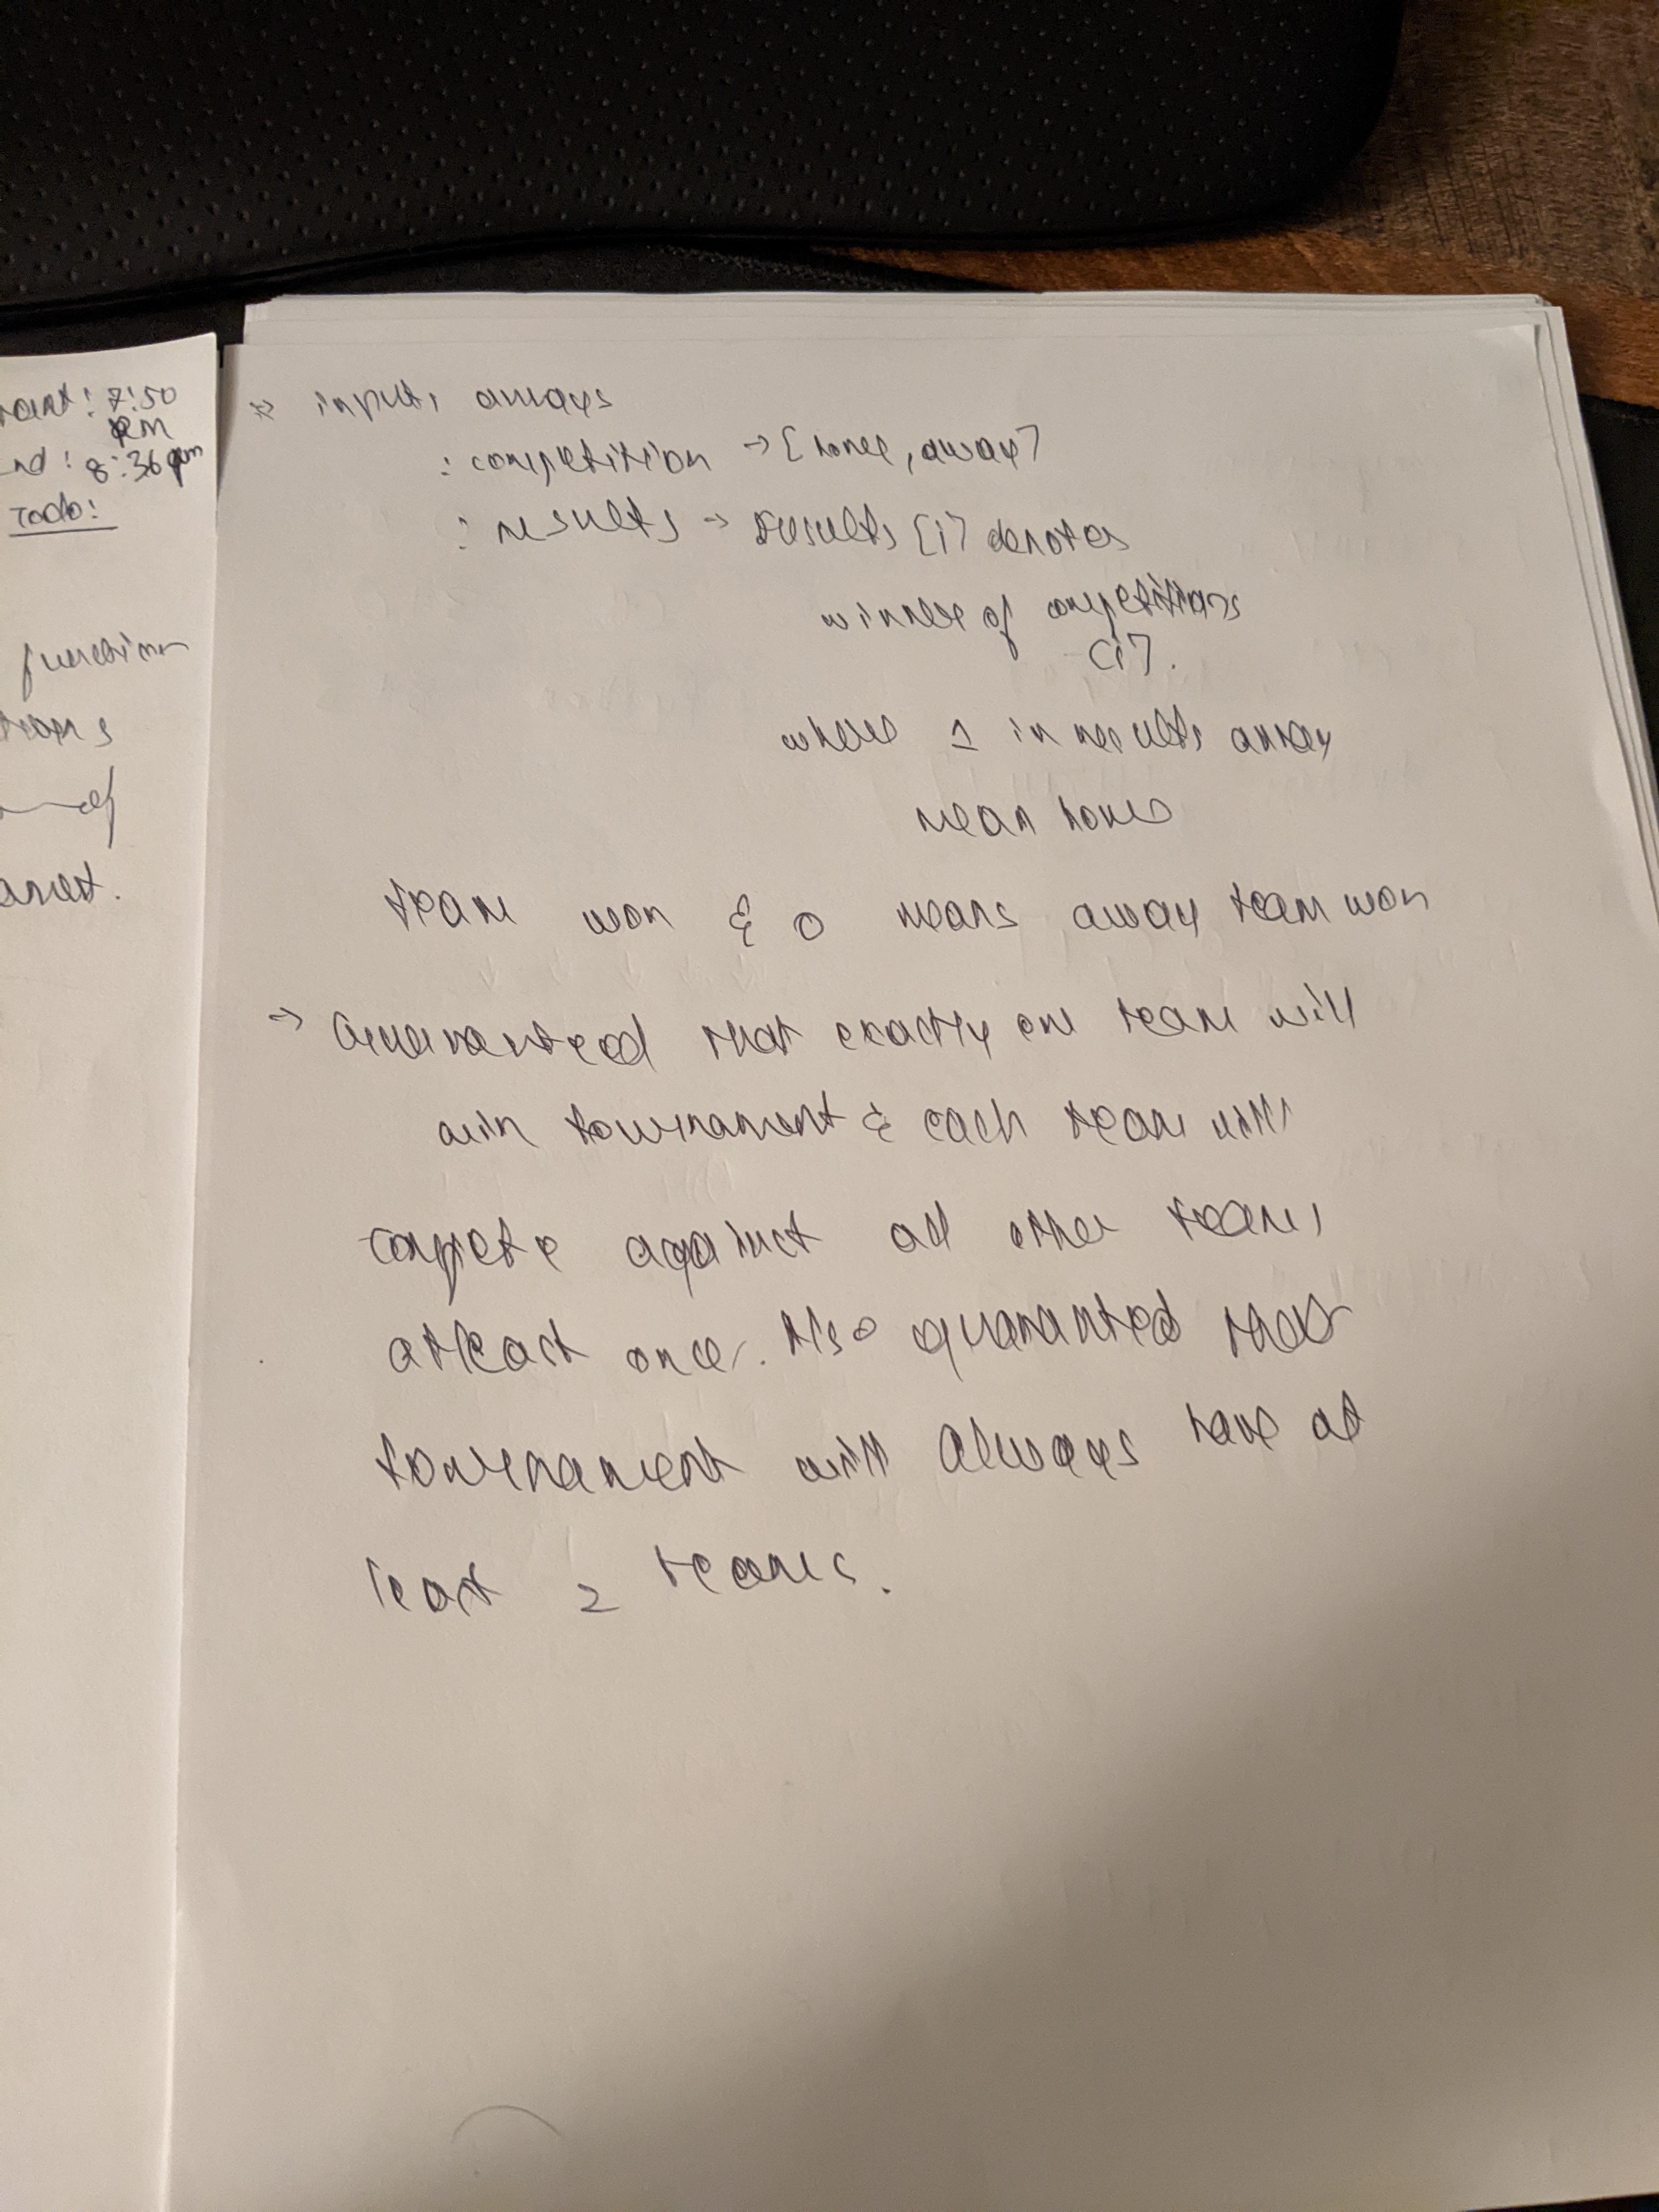 start: 7:50
pm
end: 8:36 pm
Todo:
function
anet.
→ input: arrays
: competition → [home, away]
: results → results [i] denotes
winner of competitions
[i].
where 1 in results array
mean home
team won & 0 means away team won
→ Guaranteed that exactly one team will
win tournament & each team will
compete against all other teams
atleast once. Also guaranteed that
tournament will always have at
least 2 teams.